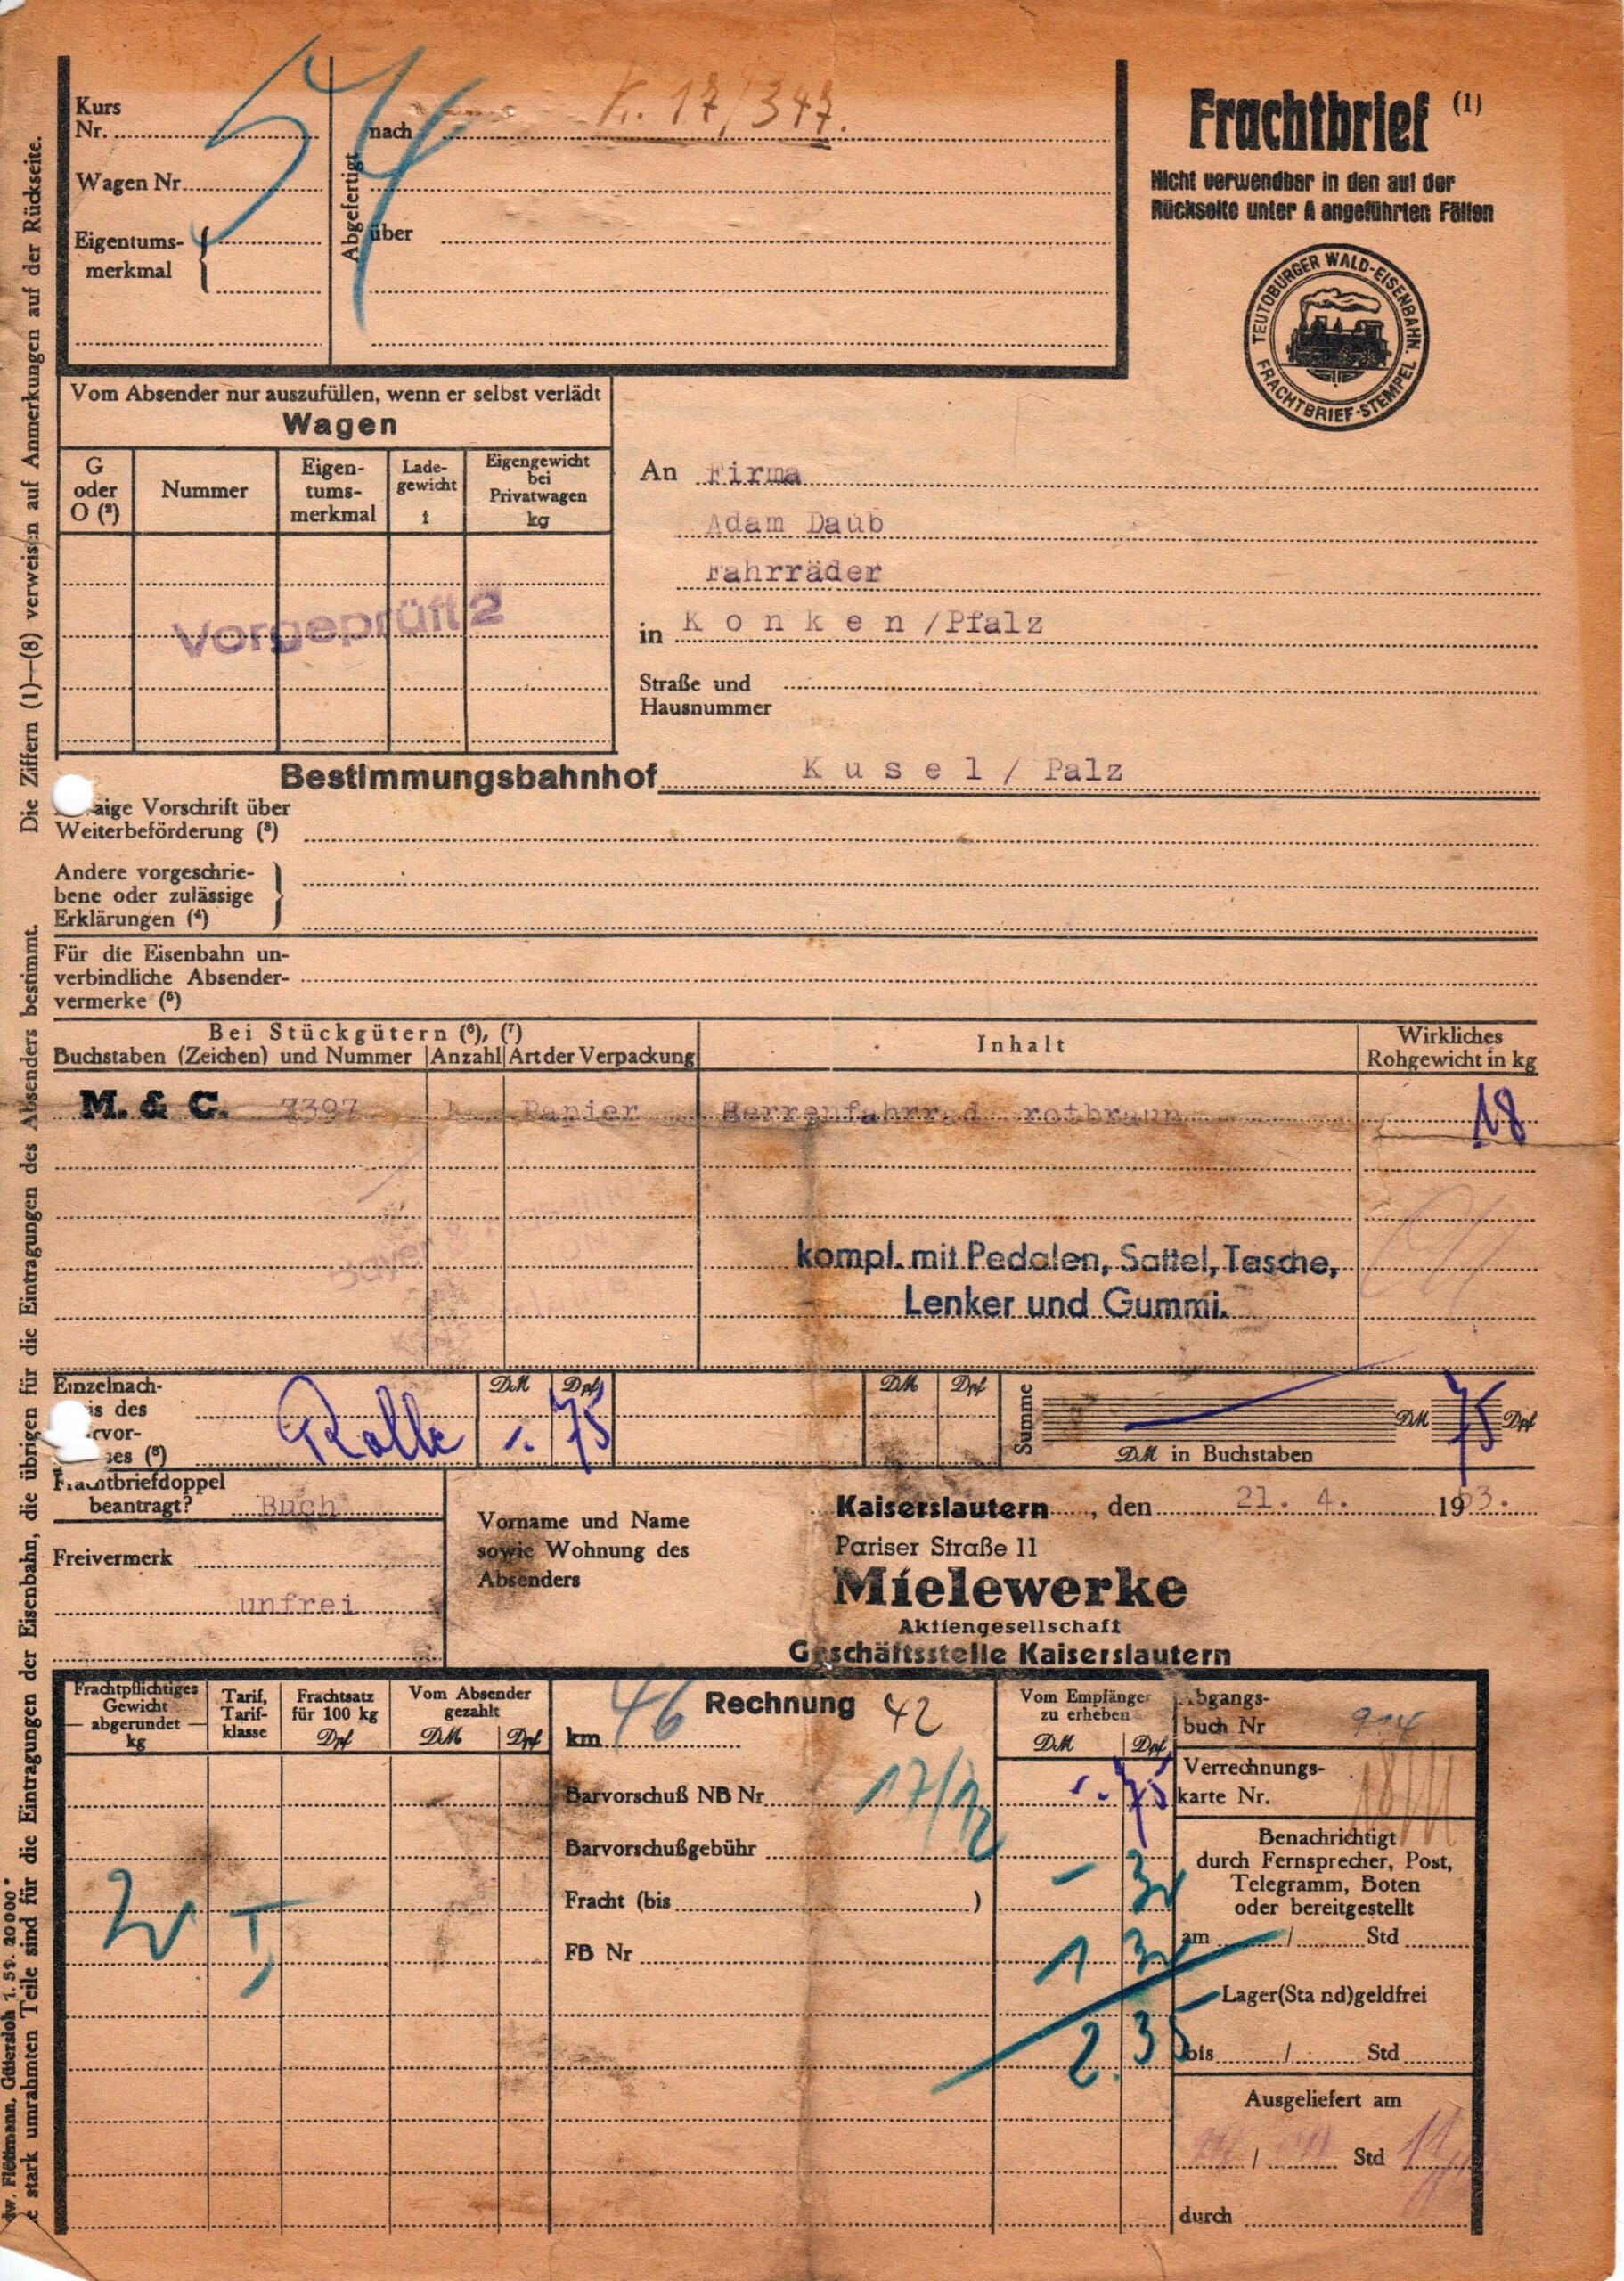 54
K. 17/347.
Kurs
Nr.
nach
Wagen Nr
Eigentums-
merkmal
Abgefertigt
über
Frachtbrief (1)
Nicht verwendbar in den auf der
Rückseite unter A angeführten Fällen
TEUTOBURGER WALD-EISENBAHN.
FRACHTBRIEF-STEMPEL
Vom Absender nur auszufüllen, wenn er selbst verlädt
Wagen
G
oder
O (²)
Nummer
Eigen-
tums-
merkmal
Lade-
gewicht
t
Eigengewicht
bei
Privatwagen
kg
Vorgeprüft 2
An Firma
Adam Daub
Fahrräder
in K o n k e n /Pfalz
Straße und
Hausnummer
Bestimmungsbahnhof K u s e l / Palz
aige Vorschrift über
Weiterbeförderung (³)
Andere vorgeschrie-
bene oder zulässige
Erklärungen (⁴)
Für die Eisenbahn un-
verbindliche Absender-
vermerke (⁵)
Bei Stückgütern (⁶), (⁷)
Buchstaben (Zeichen) und Nummer Anzahl Art der Verpackung
Inhalt
Wirkliches
Rohgewicht in kg
M. & C. 7397 1 Papier Herrenfahrrad rotbraun 18
kompl. mit Pedalen, Sattel, Tasche,
Lenker und Gummi.
Einzelnach-
is des
rvor-
ses (⁸)
Rolle
DM Dpf
-. 75
DM Dpf
Summe
DM 75 Dpf
DM in Buchstaben
Frachtbriefdoppel
beantragt? Buch
Freivermerk
unfrei
Vorname und Name
sowie Wohnung des
Absenders
Kaiserslautern, den 21. 4. 1953.
Pariser Straße 11
Mielewerke
Aktiengesellschaft
Geschäftsstelle Kaiserslautern
Frachtpflichtiges
Gewicht
abgerundet
kg
Tarif,
Tarif-
klasse
Frachtsatz
für 100 kg
Dpf
Vom Absender
gezahlt
DM Dpf
km 46
Rechnung 42
Vom Empfänger
zu erheben
DM Dpf
Abgangs-
buch Nr 914
Barvorschuß NB Nr -. 75
Verrechnungs-
karte Nr.
Barvorschußgebühr
Fracht (bis )
FB Nr
20 I
2.35
Benachrichtigt
durch Fernsprecher, Post,
Telegramm, Boten
oder bereitgestellt
am / Std
Lager(Sta nd)geldfrei
bis / Std
Ausgeliefert am
/ Std
durch
Die Ziffern (1)—(8) verweisen auf Anmerkungen auf der Rückseite.
e stark umrahnten Teile sind für die Eintragungen der Eisenbahn, die übrigen für die Eintragungen des Absenders bestimmt.
dw. Flöttmann, Gütersloh 1. 51. 20000